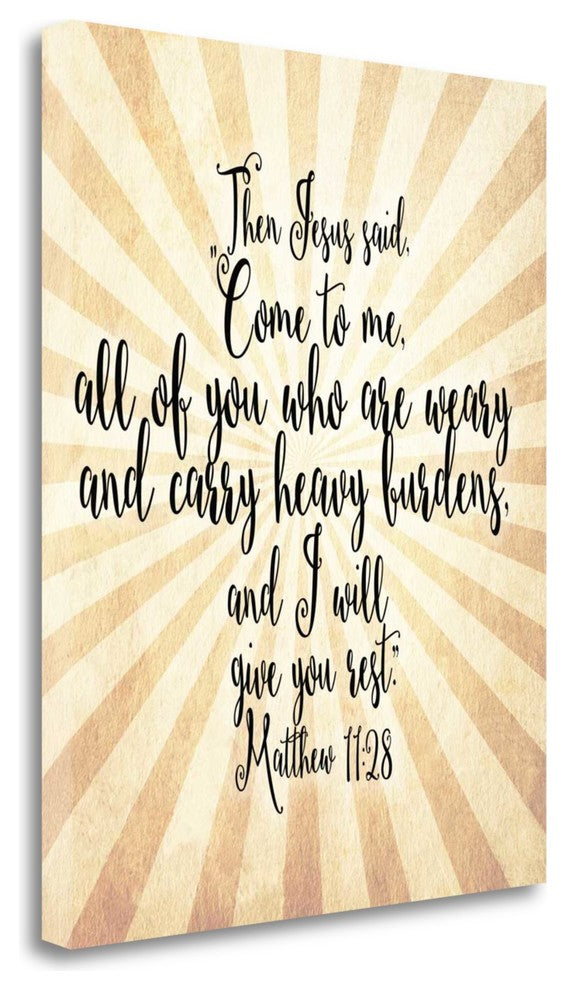 Then Jesus said,
„Come to me,
all of you who are weary
and carry heavy burdens,
and I will
give you rest.”
Matthew 11:28